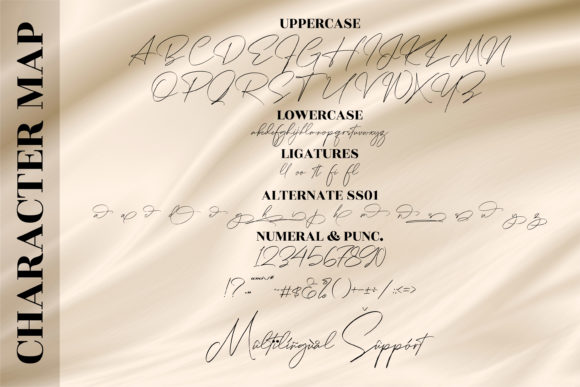 CHARACTER MAP
UPPERCASE
A B C D E F G H I J K L M N
O P Q R S T U V W X Y Z
LOWERCASE
abcdefghijklmnopqrstuvwxyz
LIGATURES
ll oo tt fi fl
ALTERNATE SS01
NUMERAL & PUNC.
1234567890
~#$&%()+-±÷/:;<=>
Múltilíngüàl Šúppórt